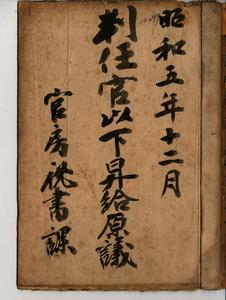 昭和五年十二月
判任官以下昇給原議
官房秘書課